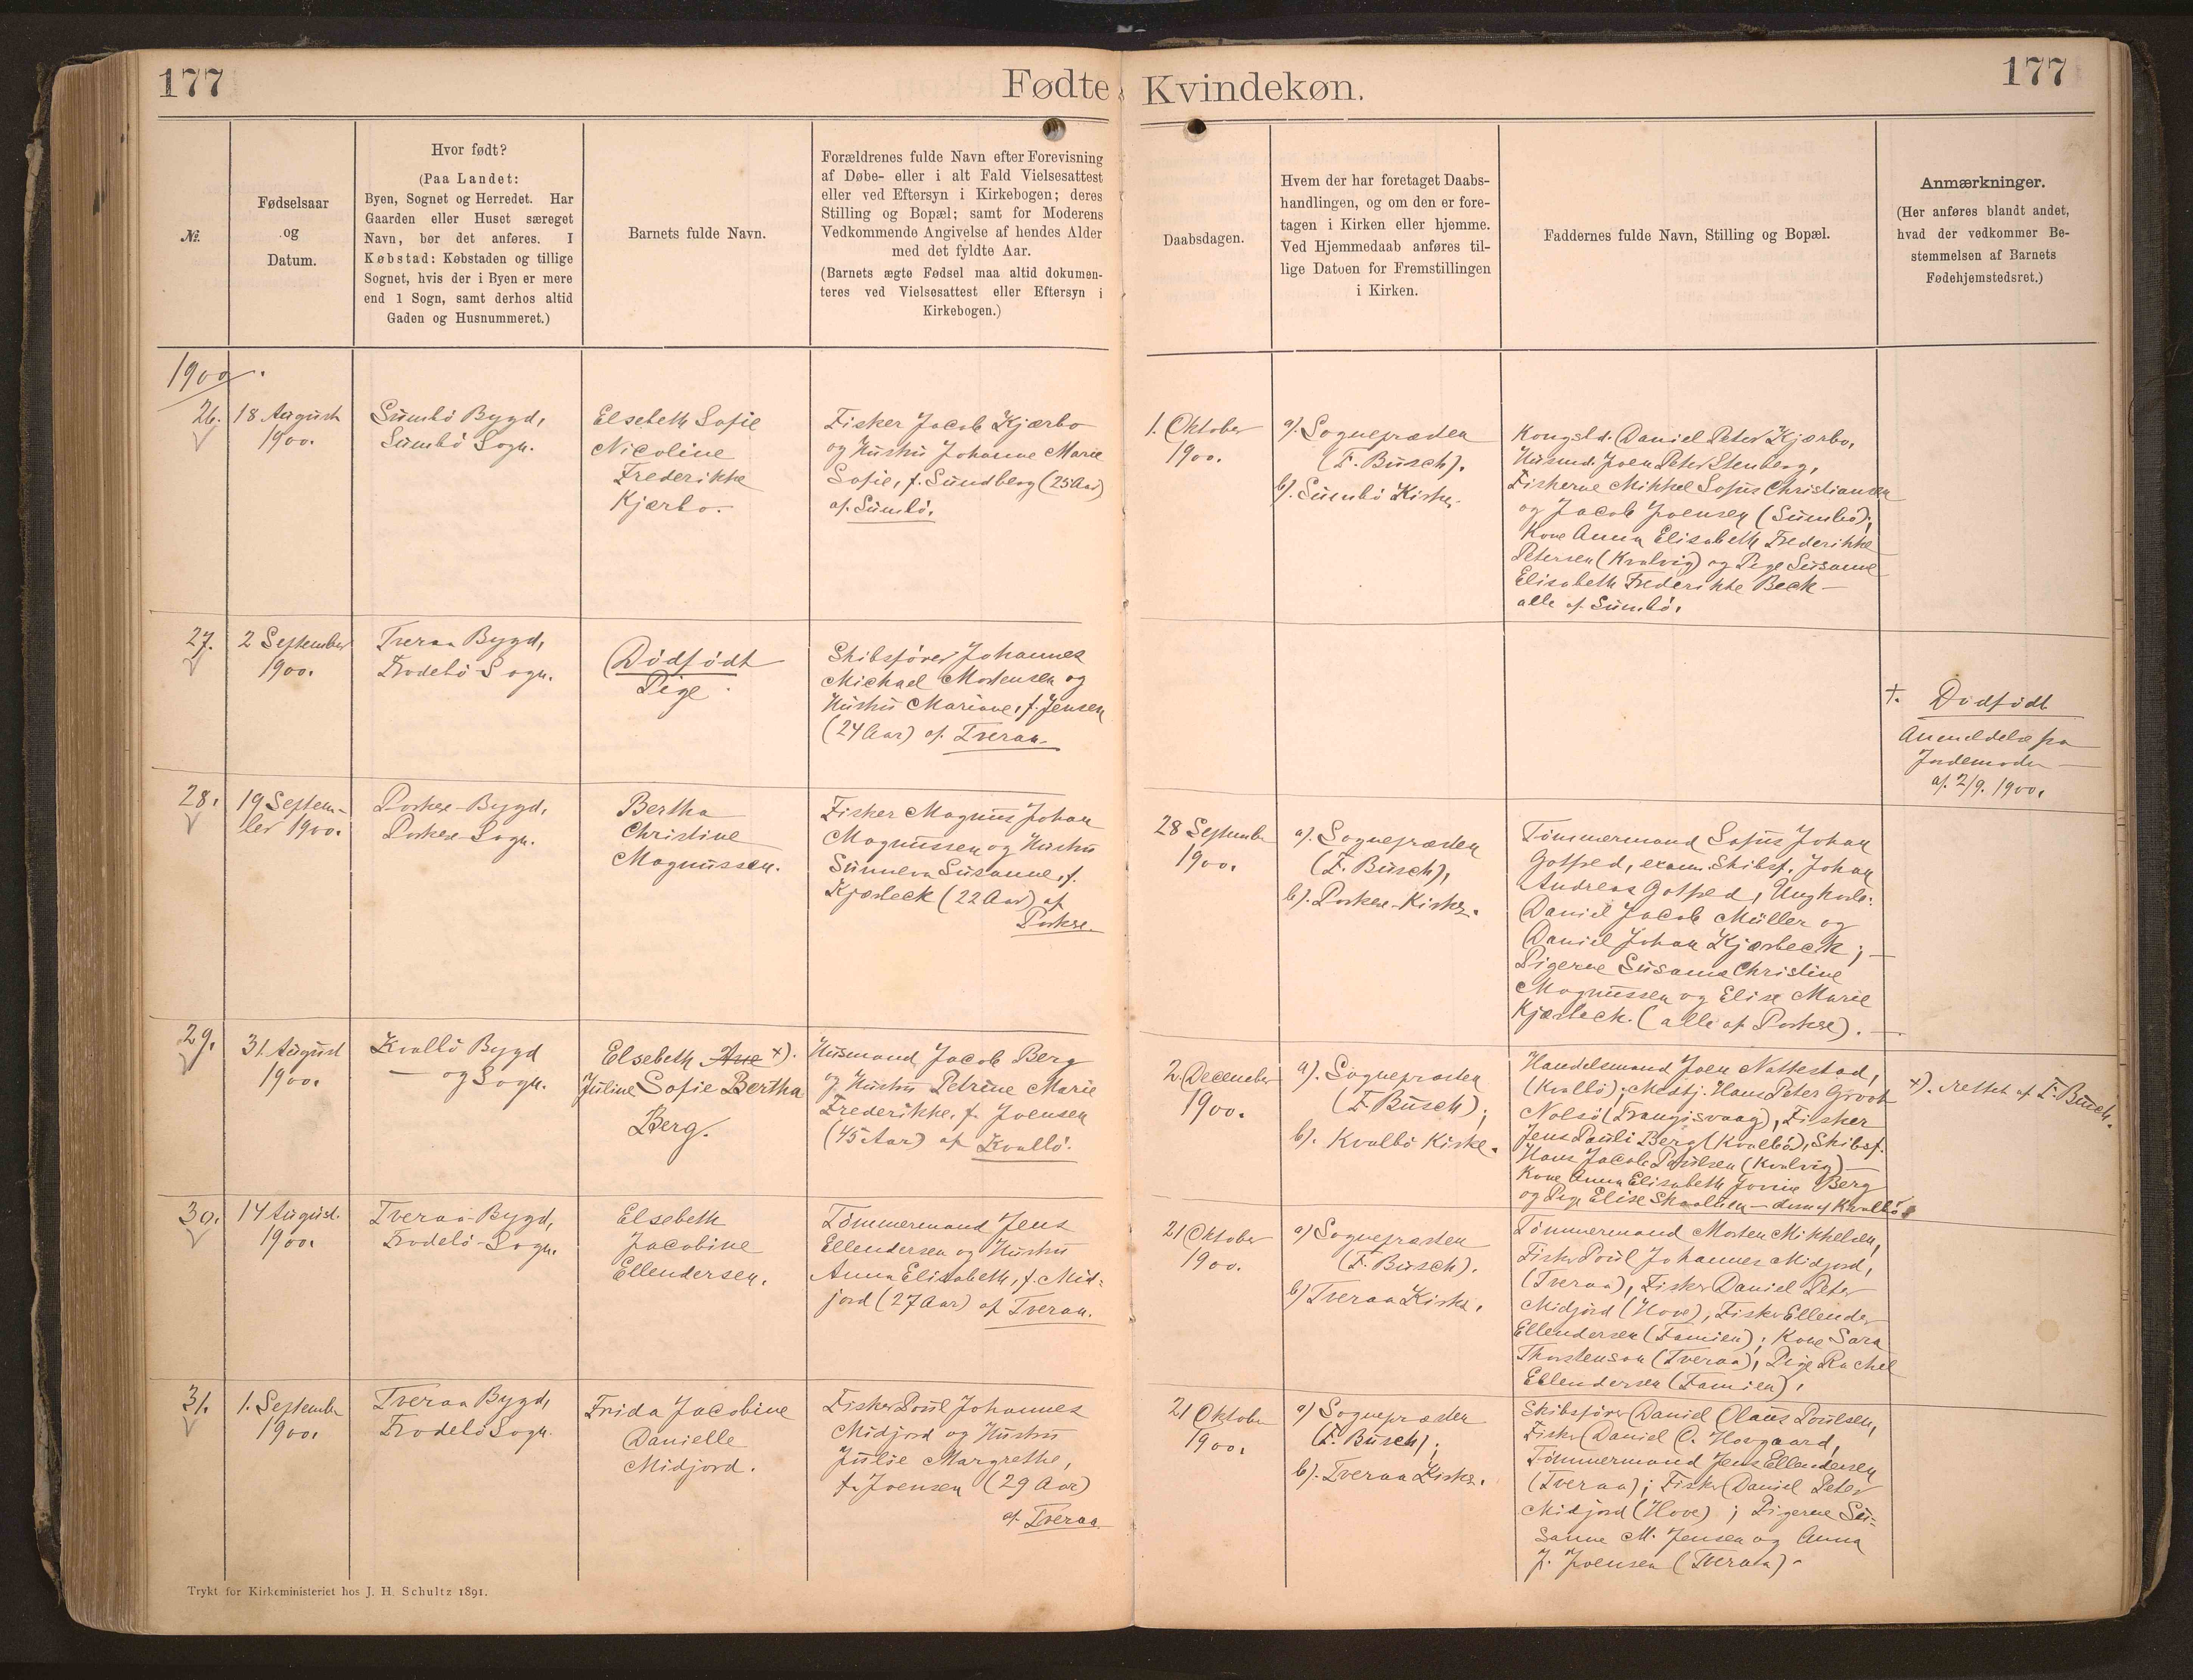 177
Fødte
Kvindekøn.
177
№
Fødselsaar
og
Datum.
Hvor født?
(Paa Landet:
Byen, Sognet og Herredet. Har
Gaarden eller Huset særeget
Navn, bør det anføres. I
Købstad: Købstaden og tillige
Sognet, hvis der i Byen er mere
end 1 Sogn, samt derhos altid
Gaden og Husnummeret.)
Barnets fulde Navn.
Forældrenes fulde Navn efter Forevisning
af Døbe- eller i alt Fald Vielsesattest
eller ved Eftersyn i Kirkebogen; deres
Stilling og Bopæl; samt for Moderens
Vedkommende Angivelse af hendes Alder
med det fyldte Aar.
(Barnets ægte Fødsel maa altid dokumen-
teres ved Vielsesattest eller Eftersyn i
Kirkebogen.)
Daabsdagen.
Hvem der har foretaget Daabs-
handlingen, og om den er fore-
tagen i Kirken eller hjemme.
Ved Hjemmedaab anføres til-
lige Datoen for Fremstillingen
i Kirken.
Faddernes fulde Navn, Stilling og Bopæl.
Anmærkninger.
(Her anføres blandt andet,
hvad der vedkommer Be-
stemmelsen af Barnets
Fødehjemstedsret.)
1900.
26.
18 August
1900.
Sumbö Bygd,
Sumbö Sogn.
Elsebeth Sofie
Nicoline
Frederikke
Kjærbo.
Fisker Jacob Kjærbo
og Hustru Johanne Marie
Sofie, f. Sundberg (25 Aar)
af Sumbö.
1. Oktober
1900.
a). Sognepræsten
(F. Busch).
b). Sumbö Kirke.
Kongsbd. Daniel Peter Kjærbo,
Husmd. Joen Peter Stenberg,
Fiskerne Mikkel Sofus Christiansen
og Jacob Joensen (Sumbö);
Kone Anna Elisabeth Frederikke
Petersen (Kvalvig) og Pige Susanne
Elisabeth Frederikke Beck —
alle af Sumbö.
27.
2 September
1900.
Tveraa Bygd,
Frodebö Sogn.
Dödfödt
Pige.
Skibsförer Johannes
Michael Mortensen og
Hustru Mariane, f. Jensen
(24 Aar) af Tveraa.
†. Dödfödt
Anmeldelse fra
Jordemoder
af 2/9. 1900.
28.
19 Septem-
ber 1900.
Porkere-Bygd,
Porkere-Sogn.
Bertha
Christine
Magnussen.
Fisker Magnus Johan
Magnussen og Hustru
Sunneva Susanne, f.
Kjærbeck (22 Aar) af
Porkere.
28 September
1900.
a). Sognepræsten
(F. Busch),
b). Porkere-Kirke.
Tömmermand Sofus Johan
Gotfred, exam. Skibsf. Johan
Andreas Gotfred, Ungkarle:
Daniel Jacob Müller og
Daniel Johan Kjærbeck; —
Pigerne Susanne Christine
Magnussen og Elise Marie
Kjærbeck. (alle af Porkere). —
29.
31. August
1900.
Kvalbö Bygd
— og Sogn.
Elsebeth Ane +).
Juline Sofie Bertha
Berg.
Husmand Jacob Berg
og Hustru Petrine Marie
Frederikke, f. Joensen
(45 Aar) af Kvalbö.
2. December
1900.
a). Sognepræsten
(F. Busch);
b). Kvalbö Kirke.
Handelsmand Joen Nattestad,
(Kvalbö); Hans Peter Groot
Nolsö (Trangisvaag), Fisker
Jens Pauli Berg (Kvalbö), Skibsf.
Hans Jacob Poulsen (Kvalvig) —
Kone Anna Elisabeth Berg
og Pige Elise Skaalum — af Kvalbö.
+). rettet af F. Busch.
30.
14 August.
1900.
Tveraa-Bygd,
Frodebö-Sogn.
Elsebeth
Jacobine
Ellendersen.
Tömmermand Jens
Ellendersen og Hustru
Anna Elisabeth, f. Mid-
jord (27 Aar) af Tveraa.
21 Oktober
1900.
a) Sognepræsten
(F. Busch).
b) Tveraa Kirke.
Tömmermand Morten Mikkelsen,
Fisker Poul Johannes Midjord,
(Tveraa), Fisker Daniel Peter
Midjord (Hove), Fisker Ellender
Ellendersen (Famien); Kone Sara
Thorstenson (Tveraa), Pige Rachel
Ellendersen (Famien).
31.
1. September
1900.
Tveraa Bygd,
Frodebö Sogn.
Frida Jacobine
Danielle
Midjord.
Fisker Poul Johannes
Midjord og Hustru
Julie Margrethe,
f. Joensen (29 Aar)
af Tveraa.
21 Oktober
1900.
a) Sognepræsten
(F. Busch);
b). Tveraa Kirke.
Skibsförer Daniel Olaus Poulsen,
Fisker Daniel C. Hovgaard,
Tömmermand Jens Ellendersen
(Tveraa); Fisker Daniel Peter
Midjord (Hove); Pigerne Su-
sanne M. Jensen og Anna
J. Joensen (Tveraa).
Trykt for Kirkeministeriet hos J. H. Schultz 1891.